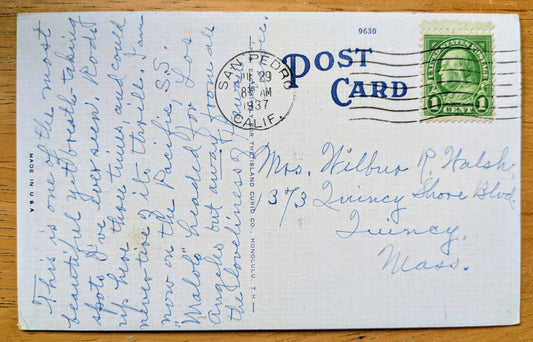 9630
POST CARD
SAN PEDRO
JUL 29
8 AM
1937
CALIF.
UNITED STATES POSTAGE
1 CENT 1
This is one of the most
beautiful yet breath-taking
spots I've ever seen. Rode
up here three times and could
never tire of its thrill. I am
now on the Pacific, S.S.
"Malolo" headed for Los
Angeles but away from all
the loveliness of
MADE IN U.S.A.
THE ISLAND CURIO CO., HONOLULU, T.H.
Mrs. Wilbur R. Walsh
373 Quincy Shore Blvd.
Quincy,
Mass.